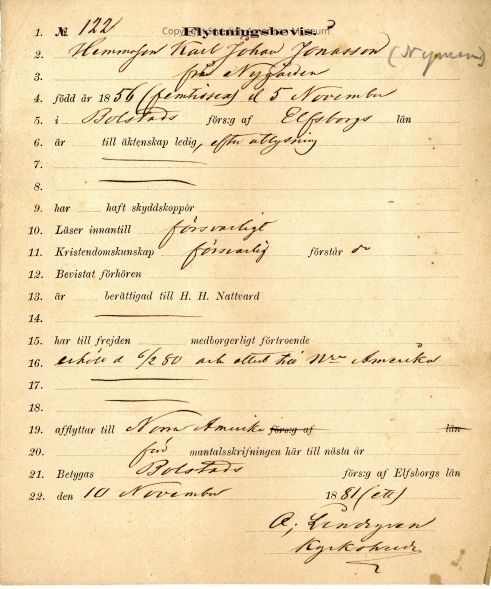 1. № 122 Flyttningsbevis
2. Hemmason Karl Johan Jonasson
3. från Nygården
4. född år 1856 (femtiosex) d 5 November
5. i Bolstads förs:g af Elfsborgs län
6. är till äktenskap ledig, efter aflysning
7.
8.
9. har haft skyddskoppor
10. Läser innantill försvarligt
11. Kristendomskunskap försvarlig förstår do
12. Bevistat förhören
13. är berättigad till H. H. Nattvard
14.
15. har till frejden medborgerligt förtroende
16. erhöll d 6/2 80 arb attest till Nrra Amerika
17.
18.
19. afflyttar till Norra Amerika förs:g af län
20. förd mantalsskrifningen här till nästa år
21. Betygas Bolstads förs:g af Elfsborgs län
22. den 10 November 1881 (ett)
Kyrkoherde